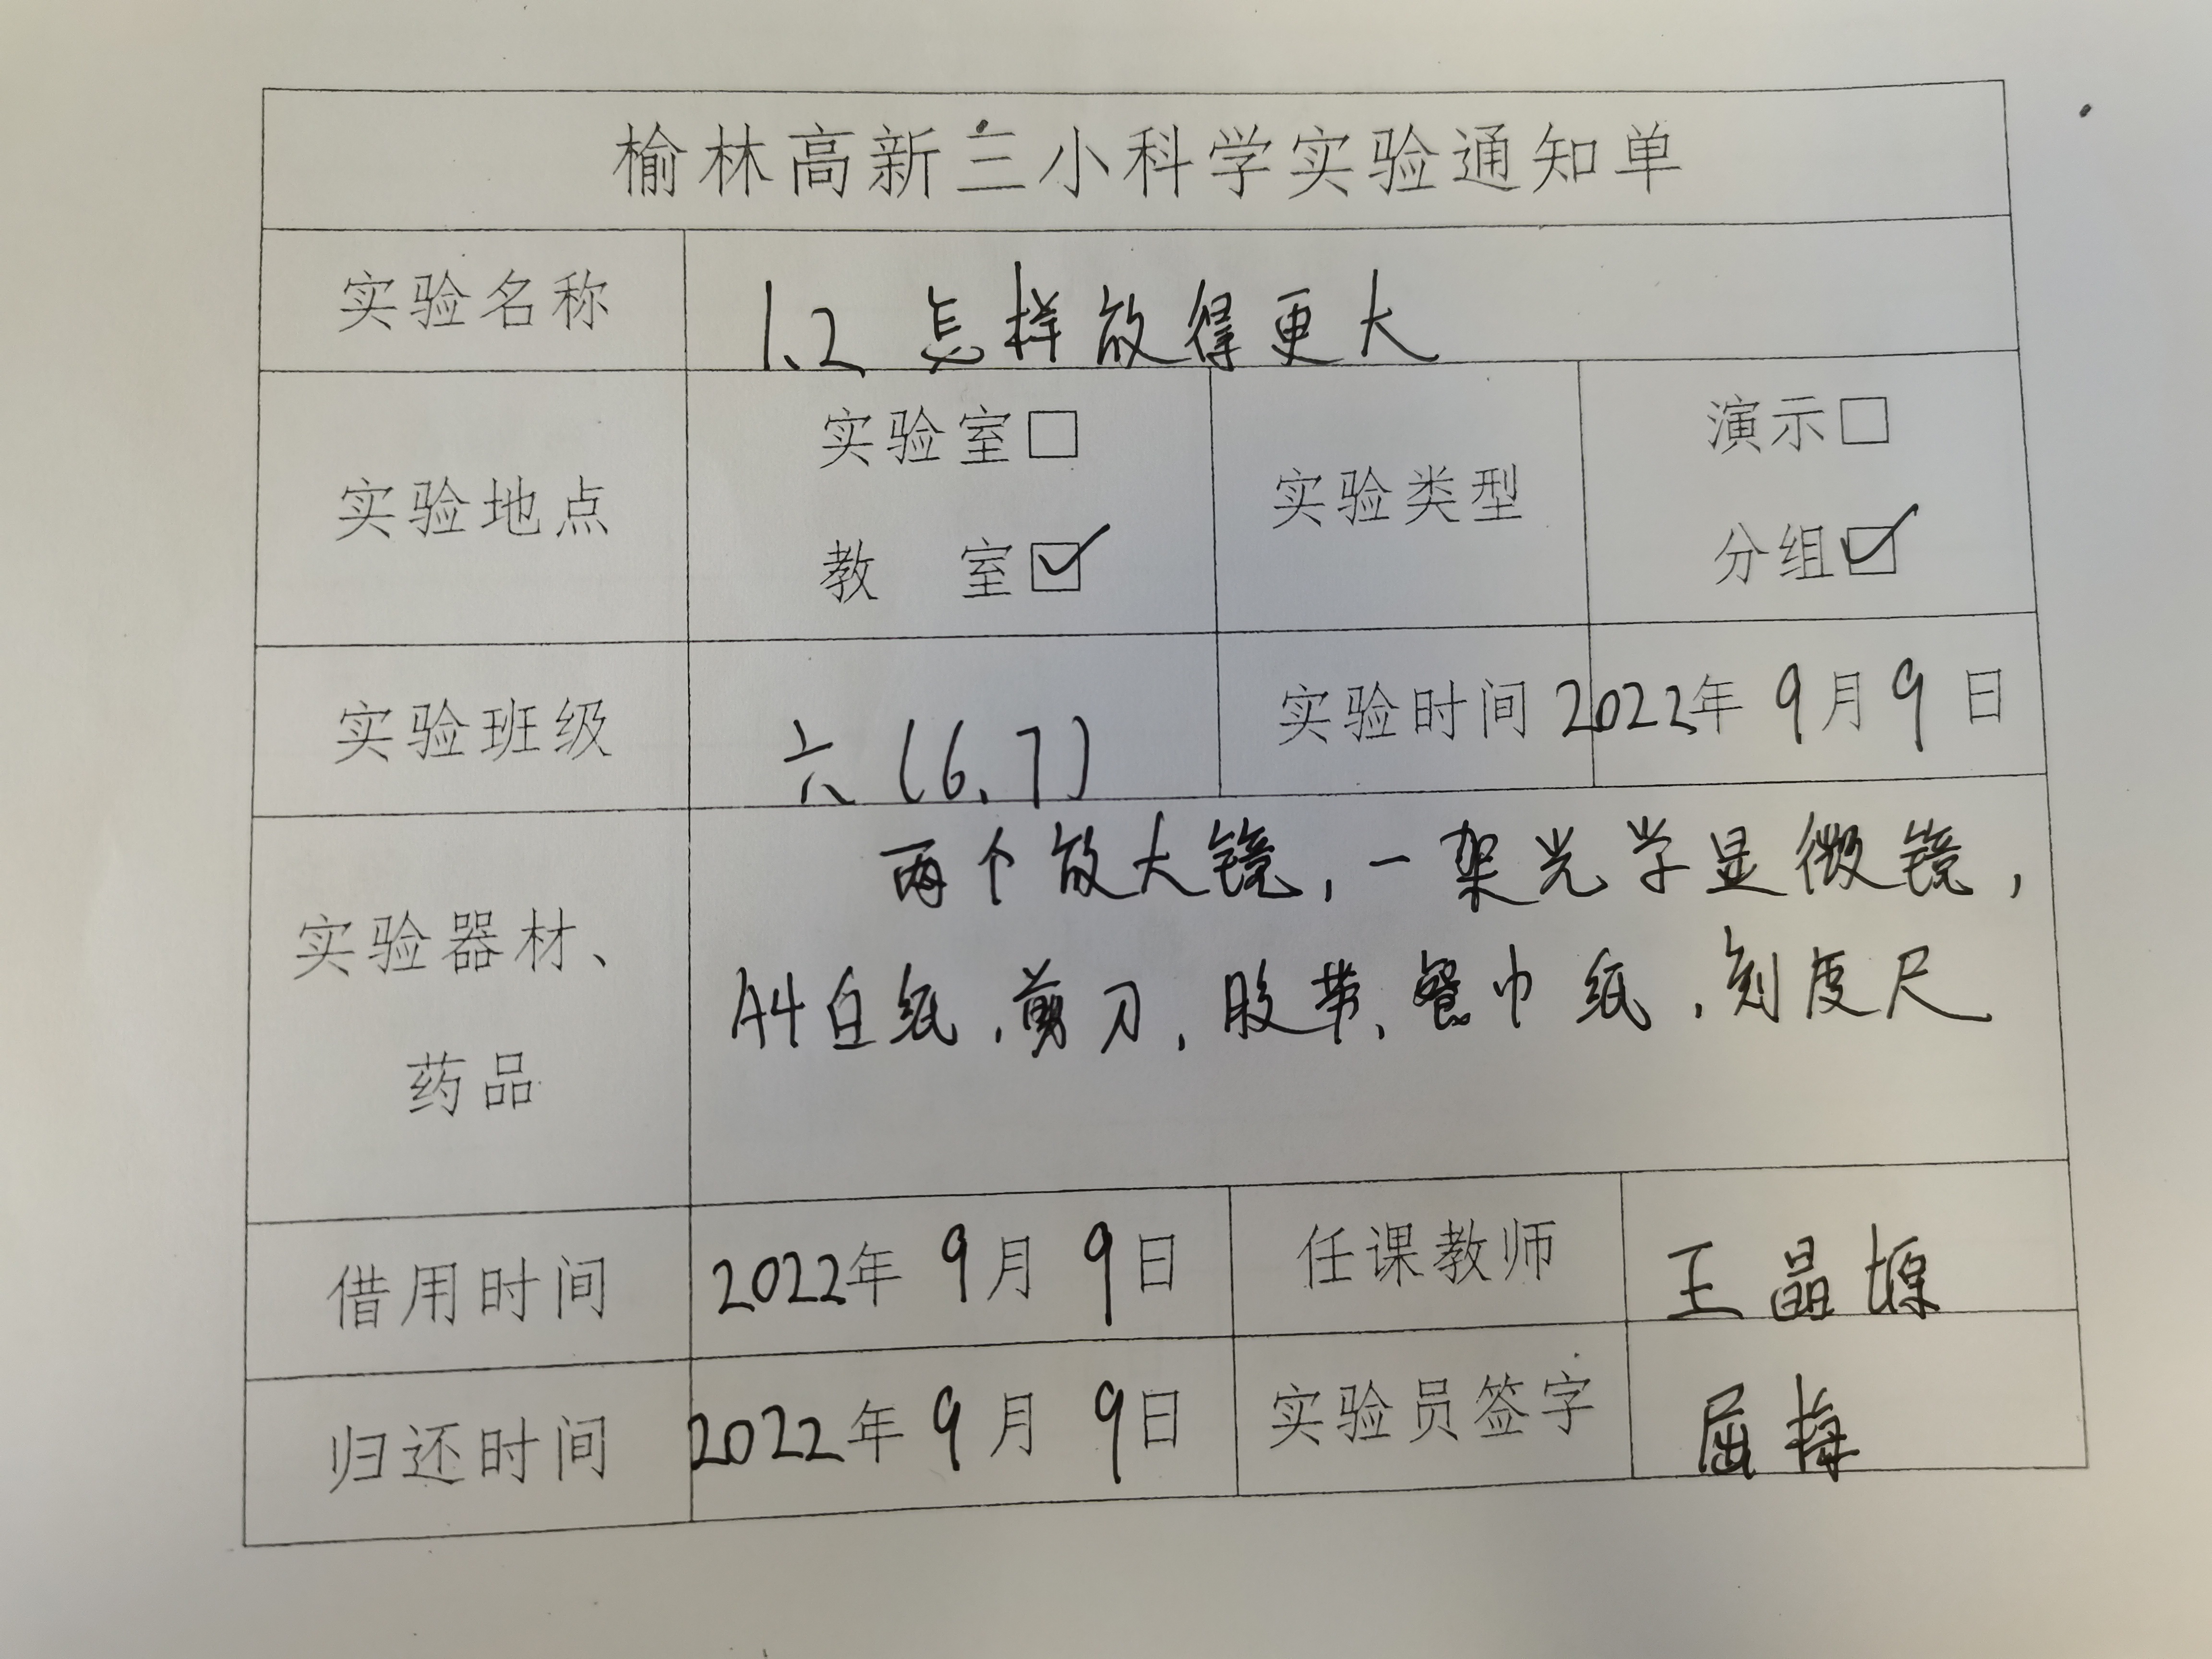 榆林高新三小科学实验通知单
实验名称 1.2 怎样放得更大
实验地点 实验室□ 教 室☑ 实验类型 演示□ 分组☑
实验班级 六(6、7) 实验时间 2022年 9月 9日
实验器材、药品 两个放大镜，一架光学显微镜，
A4白纸、剪刀、胶带、餐巾纸、刻度尺
借用时间 2022年 9月 9日 任课教师 王晶
归还时间 2022年 9月 9日 实验员签字 屈梅